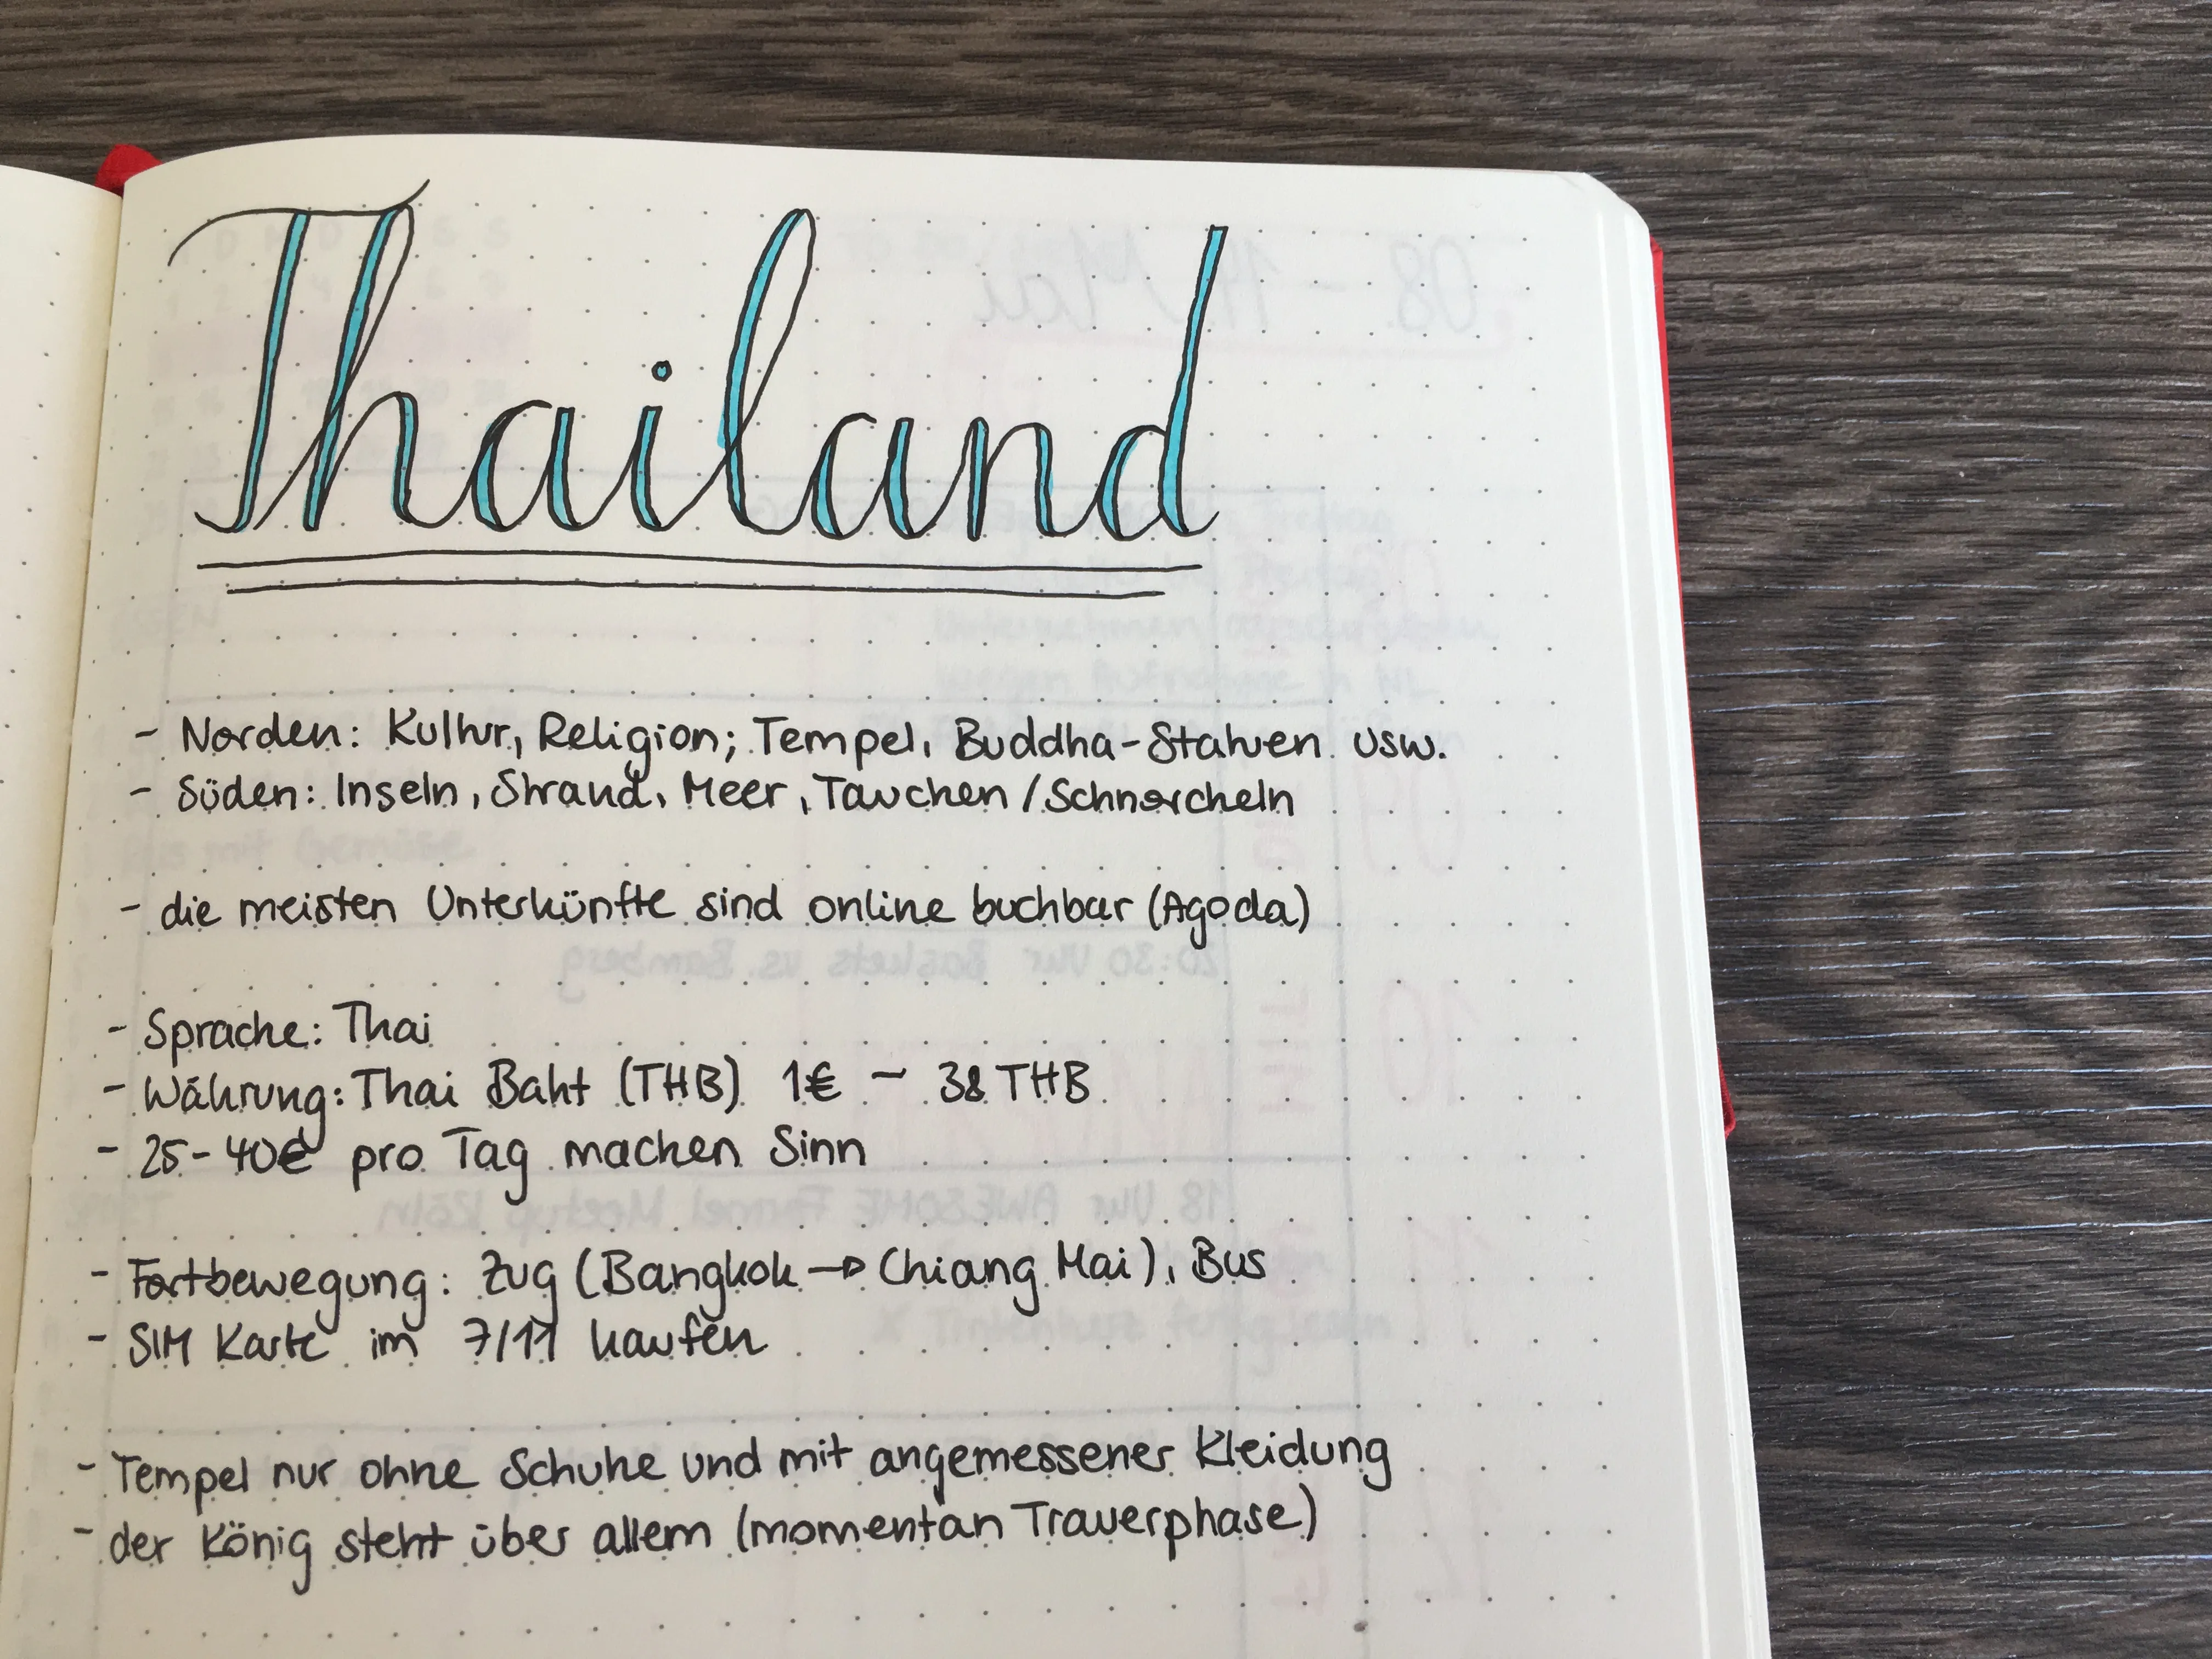 Thailand
- Norden: Kultur, Religion; Tempel, Buddha-Statuen usw.
- Süden: Inseln, Strand, Meer, Tauchen / Schnorcheln
- die meisten Unterkünfte sind online buchbar (Agoda)
- Sprache: Thai
- Währung: Thai Baht (THB) 1€ ~ 38 THB
- 25-40€ pro Tag machen Sinn
- Fortbewegung: Zug (Bangkok → Chiang Mai), Bus
- SIM Karte im 7/11 kaufen
- Tempel nur ohne Schuhe und mit angemessener Kleidung
- der König steht über allem (momentan Trauerphase)